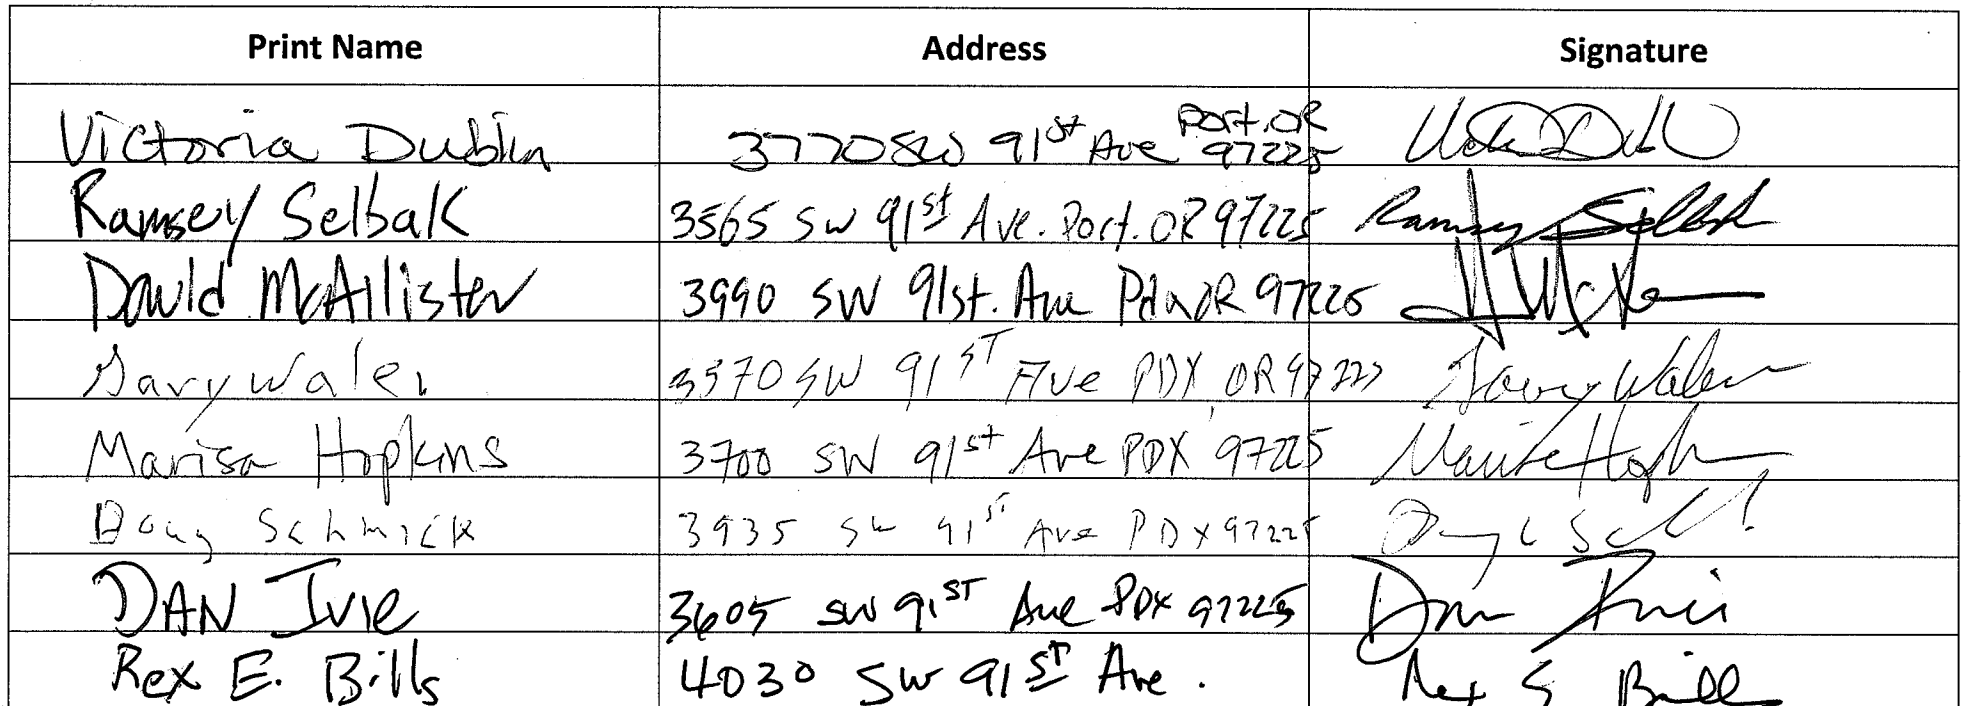 Print Name Address Signature
Victoria Dublin 3770 SW 91st Ave Port. OR 97225
Ramsey Selbak 3565 SW 91st Ave. Port. OR 97225 Ramsey Selbak
David McAllister 3990 SW 91st. Ave Pdx OR 97225
Gary Waler 3570 SW 91ST Ave PDX, OR 97225 Gary Waler
Marisa Hopkins 3700 SW 91st Ave PDX 97225
Doug Schmick 3935 SW 91ST Ave PDX 97225
DAN Ivie 3605 SW 91ST Ave PDX 97225
Rex E. Bills 4030 SW 91ST Ave. Rex E Bills